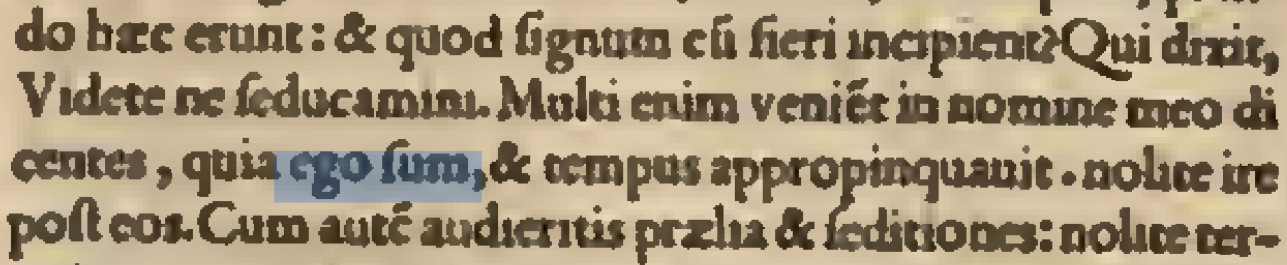 do hæc erunt: & quod ſignum cū fieri incipient? Qui dixit,
Videte ne ſeducamini. Multi enim veniēt in nomine meo di
centes, quia ego ſum, & tempus appropinquauit. nolite ire
poſt eos. Cum autē audieritis prælia & ſeditiones: nolite ter-